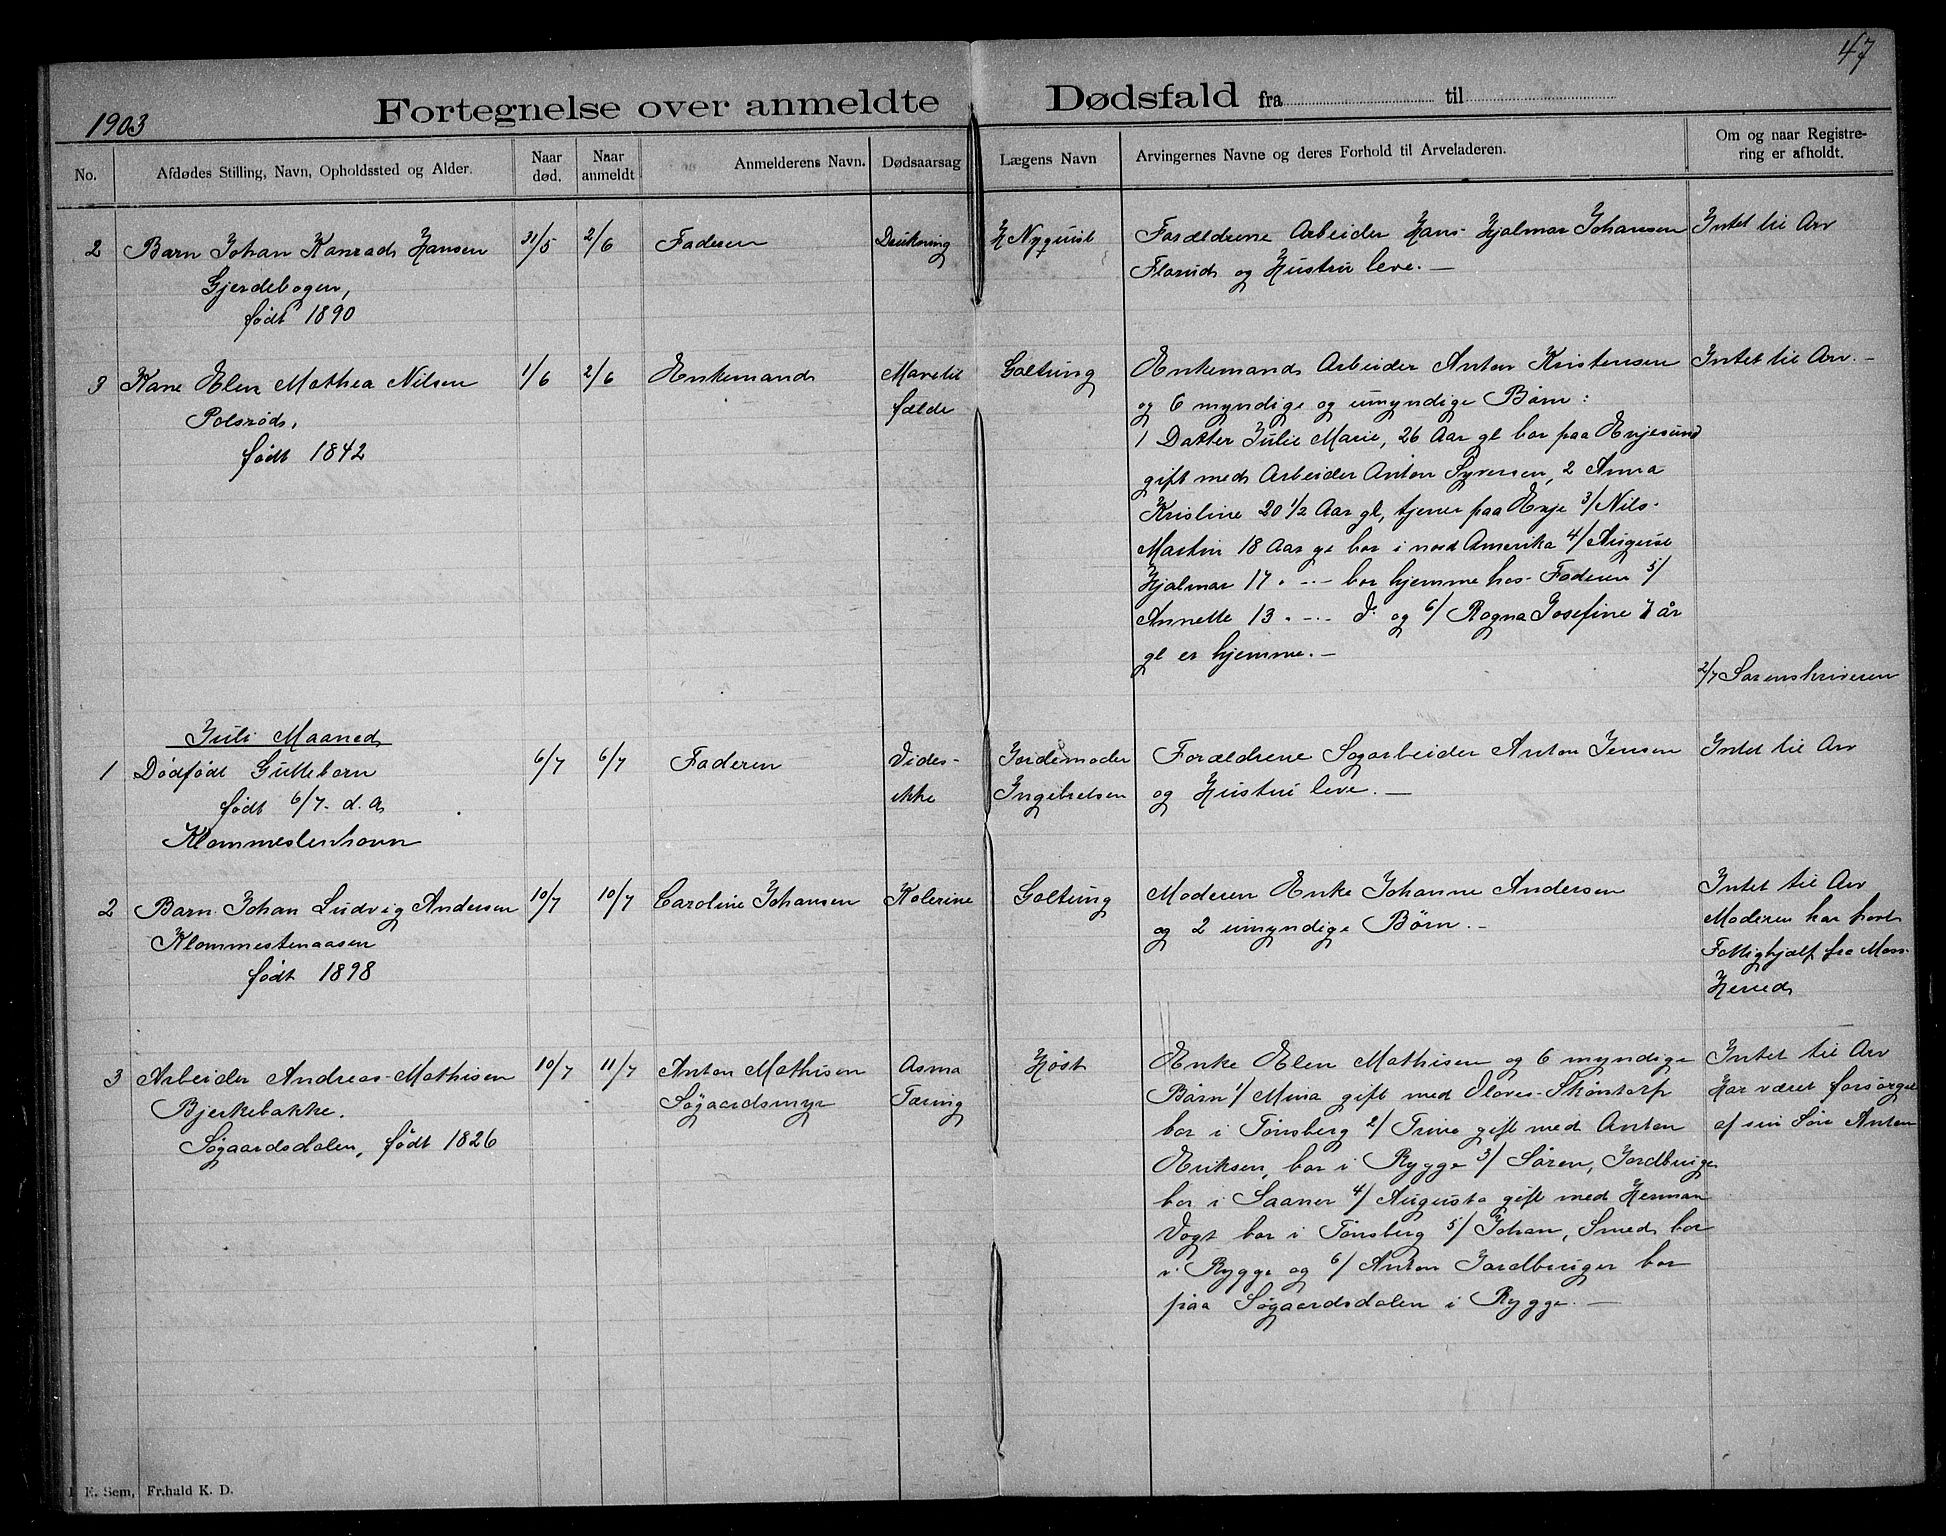 47
1903
Fortegnelse over anmeldte Dødsfald fra til
No.
Afdødes Stilling, Navn, Opholdssted og Alder.
Naar død.
Naar anmeldt
Anmelderens Navn.
Dødsaarsag
Lægens Navn
Arvingernes Navne og deres Forhold til Arveladeren.
Om og naar Registre-
ring er afholdt.
2 Barn Johan Konrad Hansen
Gjerdebogen,
født 1890
31/5
2/6
Faderen
Drukning
H Nyquist
Forældrene Arbeider Hans Hjalmar Johansen
Florud og Hustru leve. —
Intet til Arv
3 Kone Elen Mathea Nilsen
Polsrød,
født 1842
1/6
2/6
Enkemand
Mavetil
fælde
Galtung
Enkemand Arbeider Anton Kristensen
og 6 myndige og umyndige Børn:
1 Datter Julie Marie, 26 Aar gl bor paa Evjesund
gift med Arbeider Anton Syversen, 2 Anna
Kristine 20 1/2 Aar gl, tjener paa Evje 3/ Nils
Martin 18 Aar gl bor i nord Amerika 4/ August
Hjalmar 17 . -.- bor hjemme hos Faderen 5/
Annette 13 . -.- og 6/ Ragna Josefine 7 år
gl er hjemme. —
Intet til Arv. —
2/7 Sorenskriveren
Juli Maaned
1 Dødfødt Guttebarn
født 6/7. d. A
Klommestenhavn
6/7
6/7
Faderen
Vides
ikke
Jordemoder
Ingebretsen
Forældrene Sagarbeider Anton Jensen
og Hustru leve. —
Intet til Arv
2 Barn Johan Ludvig Andersen
Klommestenaasen
født 1898
10/7
10/7
Caroline Johansen
Kolerine
Galtung
Moderen Enke Johanne Andersen
og 2 umyndige Børn. —
Intet til Arv
Moderen har havt
Fattighjælp fra Moss
Herred
3 Arbeider Andreas Mathisen
Bjerkebakke.
Søgaardsdalen, født 1826
10/7
11/7
Anton Mathisen
Søgaardsmyr
Asma
Tæring
Høst
Enke Elen Mathisen og 6 myndige
Børn 1/ Mina gift med Oloves Skøntorp
bor i Tønsberg 2/ Trine gift med Anton
Eriksen, bor i Rygge 3/ Søren, Jordbruge
bor i Saaner 4/ Augusta gift med Herman
Vogt bor i Tønsberg 5/ Johan, Smed bor
i Rygge og 6/ Anton Jordbruger bor
paa Søgaardsdalen i Rygge. —
Intet til Arv
Har været forsørget
af sin Søn Anton
E. Sem, Fr.hald K. D.